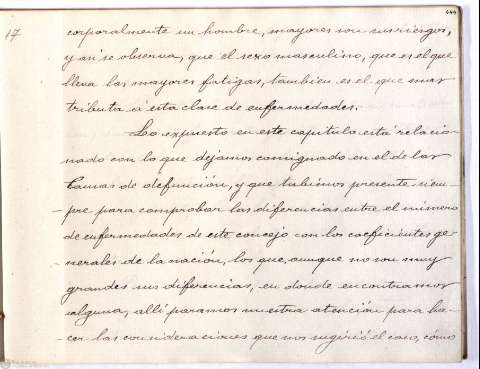 444
17
corporalmente un hombre, mayores son sus riesgos,
y así se observa, que el sexo masculino, que es el que
lleva las mayores fatigas, también es el que mas
tributa á esta clase de enfermedades.
Lo expuesto en este capitulo está relacio-
nado con lo que dejamos consignado en el de las
causas de defunción, y que tubimos presente siem-
-pre para comprobar las diferencias entre el número
de enfermedades de este concejo con los coeficientes ge-
-nerales de la nación, los que, aunque no son muy
grandes sus diferencias, en donde encontramos
alguna, allí paramos nuestra atención para ha-
-cer las consideraciones que nos sugirió el caso, cómo